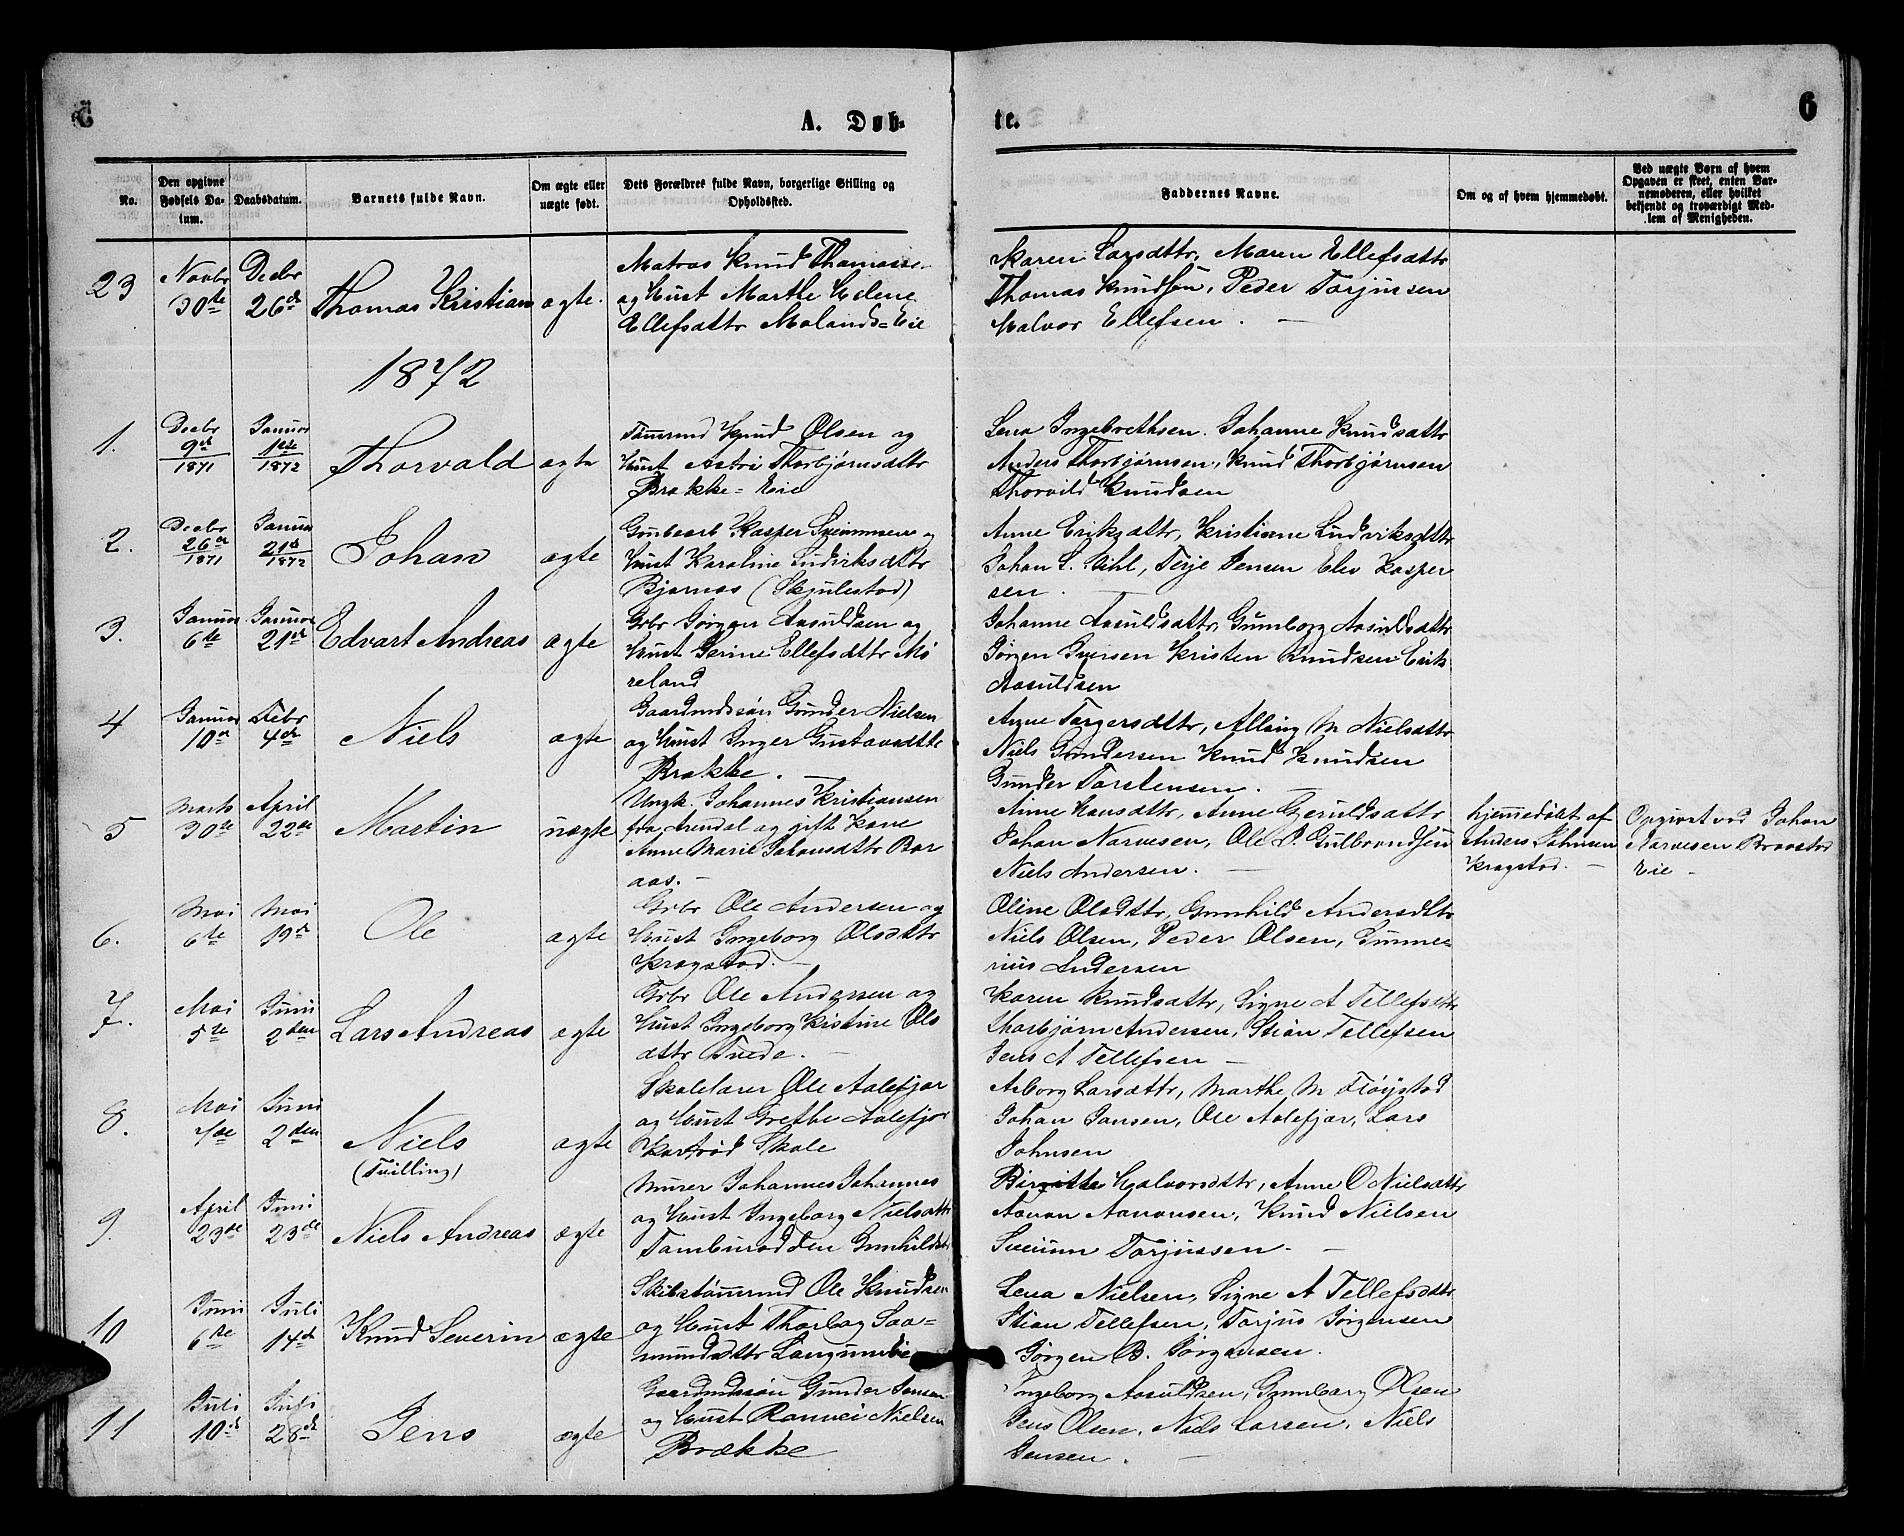 A. Døb-
te.
6
No.
Den opgivne Fødsels Da-tum.
Daabsdatum.
Barnets fulde Navn.
Om ægte eller uægte født.
Dets Forældres fulde Navn, borgerlige Stilling og Opholdssted.
Faddernes Navne.
Om og af hvem hjemmedøbt.
Ved uægte Børn af hvem Opgaven er skeet, enten Bar-nemoderen, eller hvilket bekjendt og troværdigt Med-lem af Menigheden.
23
Novbr 30te
Decbr 26de
Thomas Kristian
ægte.
Matros Knud Thomasse-
og Hust Marthe Helene
Ellefsdttr Molands-Eie
Karen Larsdttr, Maren Ellefsdttr
Thomas Knudsøn, Peder Torjusen
Halvor Ellefsen.
1872
1.
Decbr 9de 1871
Januar 1ste 1872
Thorvald
ægte
Tømmd Knud Olsen og
Hust Astri Thorbjørnsdttr
Brække-Eie
Lena Ingebrethsen. Johanne Knudsdttr
Anders Thorbjørnsen, Knud Thorbjørnsen
Thorvild Knudsen
2.
Decbr 26de 1871
Januar 21de 1872
Johan
ægte
Kasper og
Hust Karoline Ludviksdttr
Bjørnes (Skjulestad)
Anne Eriksdttr, Kristiane Ludviksdttr
Johan L. Terje Jensen Elev Kasper
sen.
3.
Januar 6te
Januar 21de
Edvart Andreas
ægte
Grbr Jørgen Aasuldsen og
Hust Serine Ellefsdttr Mø
reland
Johanne Aasuldsdttr, Gunborg Aasuldsdttr
Jørgen Kristen Knudsen Erik
Aasuldsen
4
Januar 10de
Febr 4de
Niels
ægte
Gaardmdssøn Gunder Nielsen
og Hust Inger Gustavsdttr
Brække.
Anne Torgersdttr, M Nielsdttr
Niels Gundersen Knud Knudsen
Gunder Torstensen.
5
Marts 30te
April 22de
Martin
uægte
Ungk. Johannes Kristiansen
fra Arendal og gift Kone
Anne Marie Johansdttr Bor
aas.
Anne Hansdttr, Anne Geruldsdttr
Johan Narvesen, Ole P. Gulbrandsen
Niels Andersen.
hjemmedøbt af
Anders Johnsen
Kragstad.
Opgivet ved Johan
Narvesen Braastad
Eie
6.
Mai 6te
Mai 19de
Ole
ægte
Grbr Ole Andersen og
Hust Ingeborg Olsdttr
Kragstad.
Oline Olsdttr, Gunhild Andersdttr
Niels Olsen, Peder Olsen, Gunne-
rius Andersen
7.
Mai 5te
Juni 2den
Lars Andreas
ægte
Grbr Ole Andersen og
Hust Ingeborg Kistine Ols
dttr Tvede.
Karen Knudsdttr, Signe A Tellefsdttr
Thorbjørn Andersen, Stian Tellefsen
Jens A Tellefsen
8.
Mai 7de
Juni 2den
Niels
(Tvilling)
ægte
Skolelærer Ole Aalefjær
og Hust Grethe Aalefjær
Skole
Asborg Larsdttr, Marthe M Fløystad
Johan Jansen, Ole Aalefjær, Lars
Johnsen
9.
April 23de
Juni 23de
Niels Andreas
ægte
Murer Johannes Johannes
og Hust Ingeborg Nielsdttr
Birgitte Halvorsdttr, Anne O Nielsdttr
Aanon Aanonsen, Knud Nielsen
Sveinun Torjussen.
10
Juni 6te
Juli 14de
Knud Severin
ægte
Skibstømmmd Ole Knudsen
og Hust Thorbog Saa-
mundsdttr
Lena Nielsen, Signe A Tellefsdttr
Stian Tellefsen, Torjus Jørgensen
Jørgen B. Jørgensen.
11
Juli 10de
Juli 28de
Jens
ægte
Gaardmdssøn Gunder Jensen
og Hust Ranvei Nielsen
Brække
Ingeborg Aasuldsen, Gunborg Olsen
Jens Olsen, Niels Larsen, Niels
Jensen.